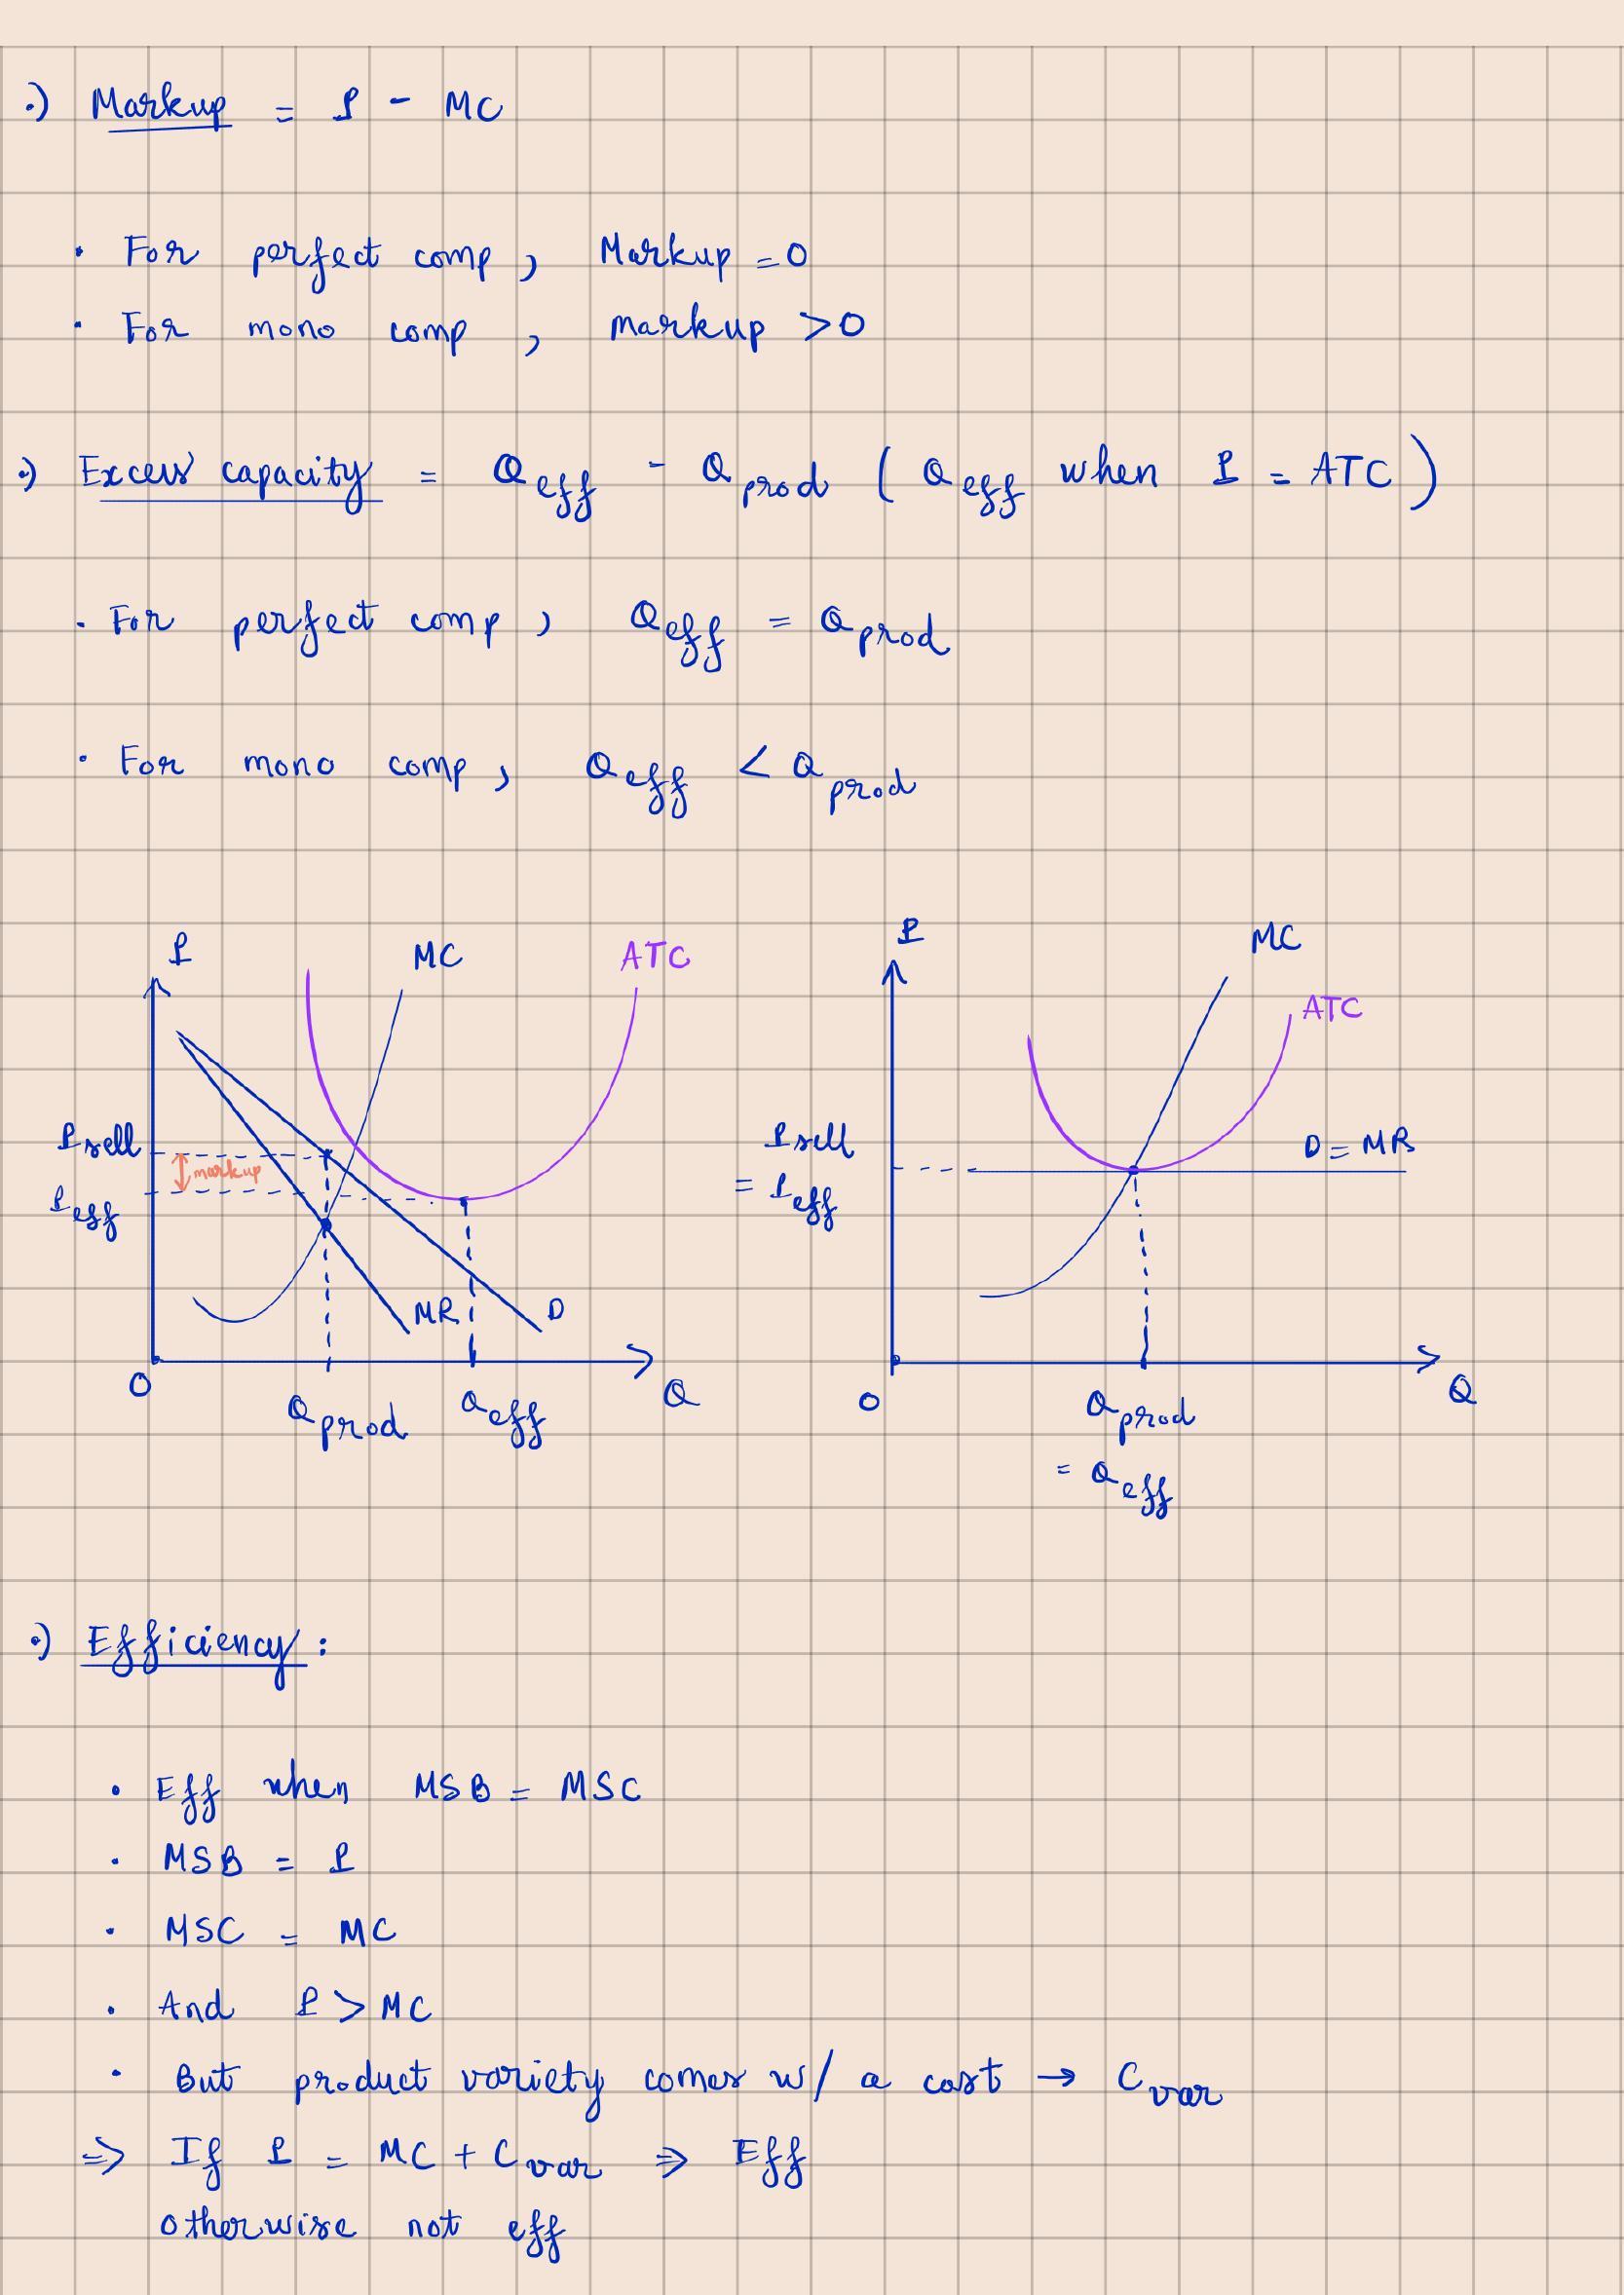 ·) Markup = P - MC
· For perfect comp, Markup = 0
· For mono comp, markup > 0
·) Excess capacity = Q eff - Q prod ( Q eff when P = ATC )
· For perfect comp, Q eff = Q prod
· For mono comp, Q eff < Q prod
P
MC
ATC
P sell
markup
P eff
MR
D
O
Q
Q prod
Q eff
P
MC
ATC
P sell
= P eff
D = MR
O
Q
Q prod
= Q eff
·) Efficiency :
· Eff when MSB = MSC
· MSB = P
· MSC = MC
· And P > MC
· But product variety comes w/ a cost → C var
⇒ If P = MC + C var ⇒ Eff
otherwise not eff